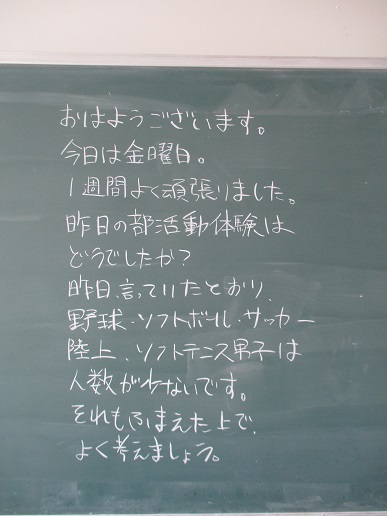 おはようございます。
今日は金曜日。
1週間よく頑張りました。
昨日の部活動体験は
どうでしたか?
昨日、言っていたとおり、
野球・ソフトボール・サッカー
陸上、ソフトテニス男子は
人数が少ないです。
それもふまえた上で、
よく考えましょう。